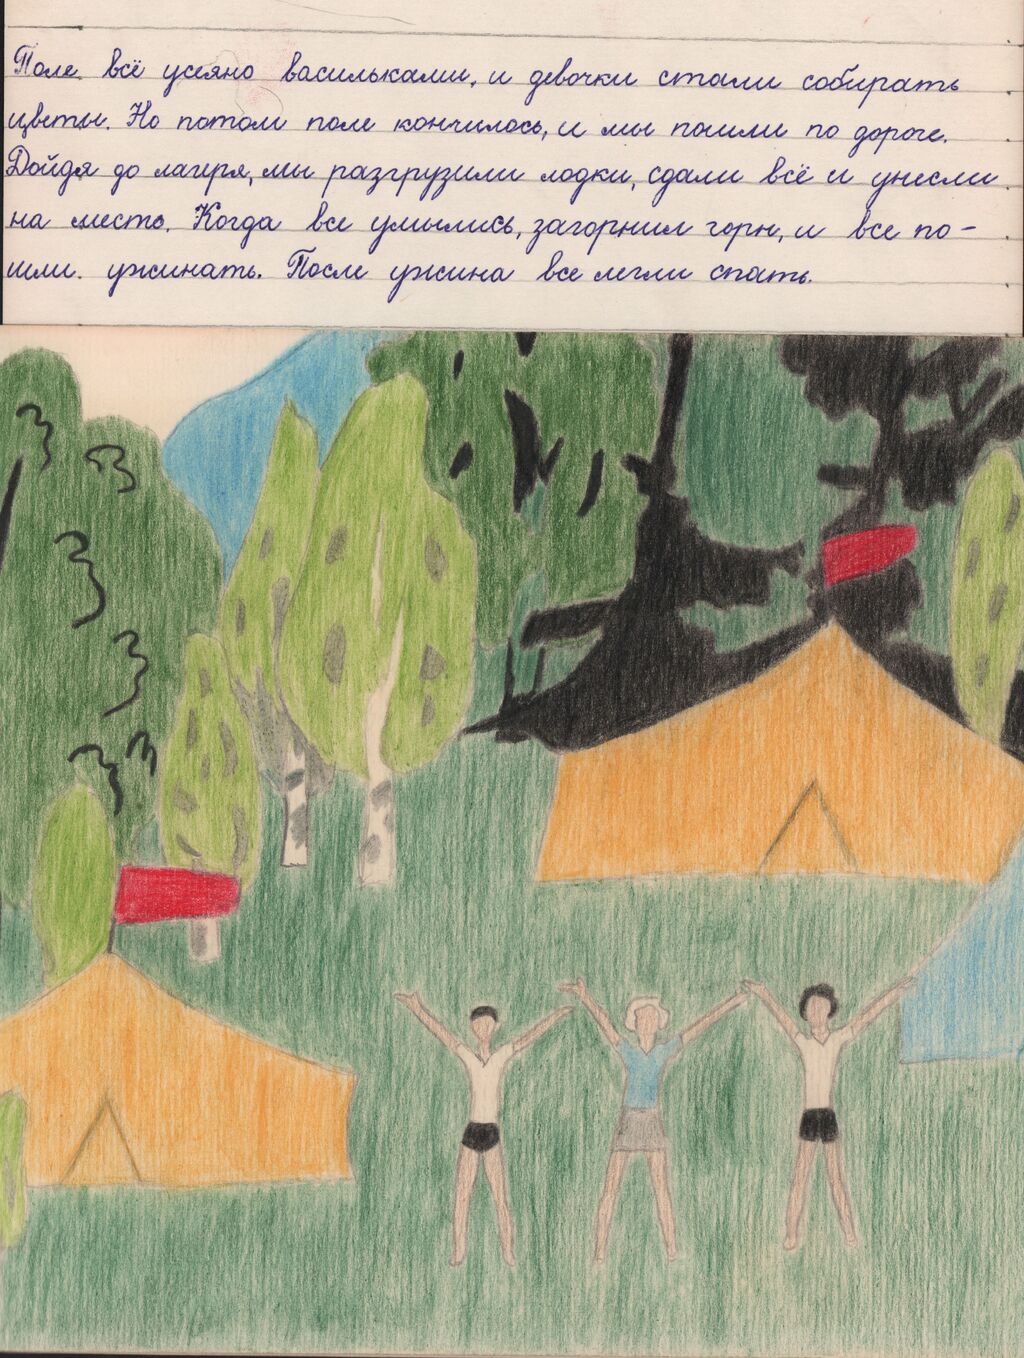 Поле всё усеяно васильками, и девочки стали собирать
цветы. Но потом поле кончилось, и мы пошли по дороге.
Дойдя до лагеря, мы разгрузили лодки, сдали всё и унесли
на место. Когда все умылись, загорнил горн, и все по-
шли ужинать. После ужина все легли спать.